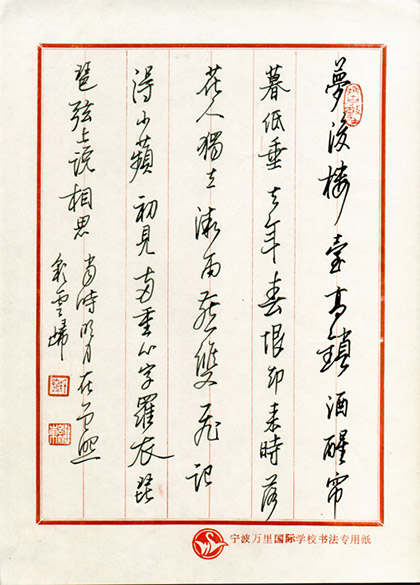 夢後楼臺高鎖酒醒帘
幕低垂去年春恨却来時落
花人獨立微雨燕雙飛记
得小蘋初見两重心字羅衣琵
琶弦上说相思
当時明月在曾照
彩雲歸
宁波万里国际学校书法专用纸